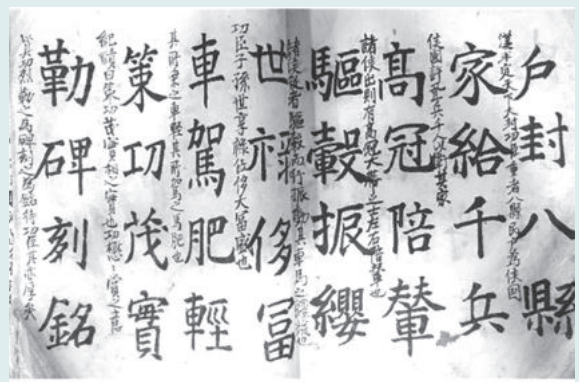 戶封八縣
漢平定天下大封功臣重者八縣民戶為侯國
家給千兵
侯國許置兵千人以衛其家
髙冠陪輦
諸侯出則有高冠大帶之士左右陪輦也
驅轂振纓
諸侯從者驅轂而行振動其車馬之纓也
世祿侈冨
功臣子孫世享祿位侈大富厚也
車駕肥輕
其所乘之車輕其所駕之馬肥也
策功茂實
紀績曰策功茂實
勒碑刻銘